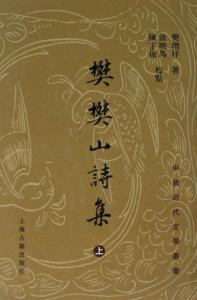 樊增祥 著
涂曉馬
陳宇俊 校點
樊樊山詩集
上
中國近代文學叢書
上海古籍出版社